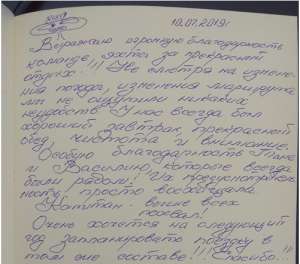 10.07.2019г.
Выражаю огромную благодарность
команде яхты за прекрасный
отдых!!! Не смотря на измене-
ния погоды, изменения маршрута
мы не ощутили никаких
неудобств. У нас всегда был
хороший завтрак, прекрасный
обед, чистота и внимание.
Особую благодарность
и Василию, которые всегда
были рядом! Их
ность просто восхищала.
Капитан - выше всех
похвал!
Очень хочется на следующий
год запланировать поездку в
том же составе!!! Спасибо...